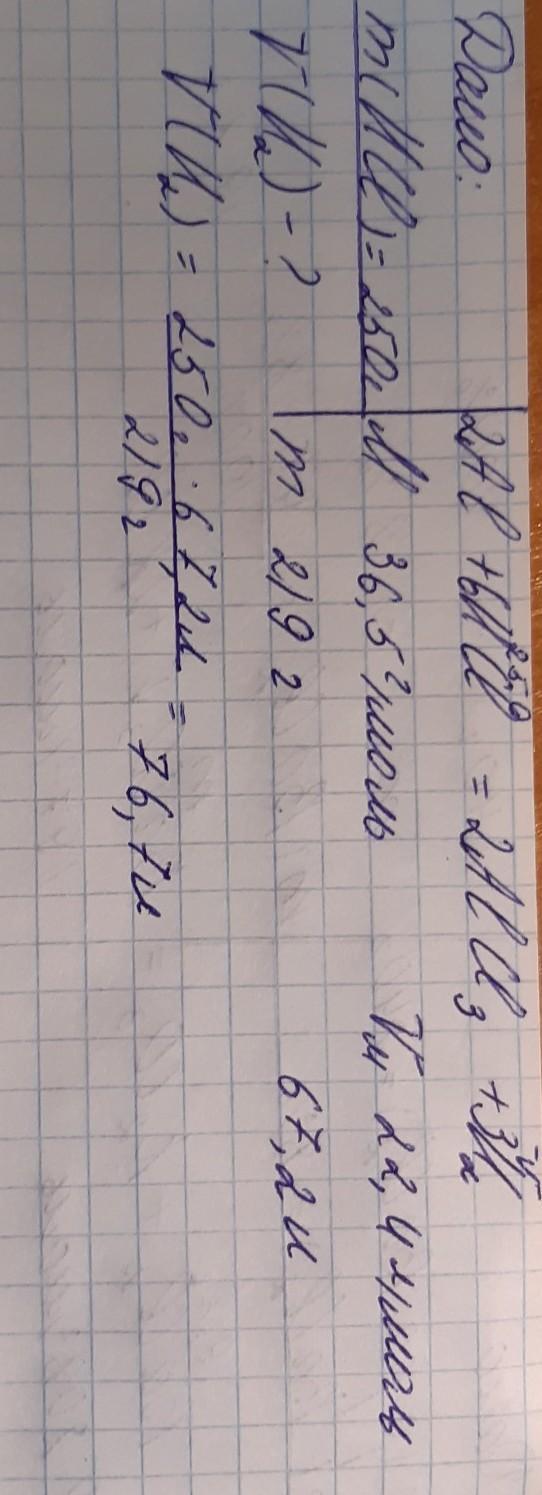 Дано:
m(HCl) = 250г
V(H₂) - ?
2Al + 6HCl = 2AlCl₃ + 3H₂
M 36,5 г/моль Vм 22,4 л/моль
m 219 г 67,2 л
V(H₂) = 250г · 67,2л / 219г = 76,7л